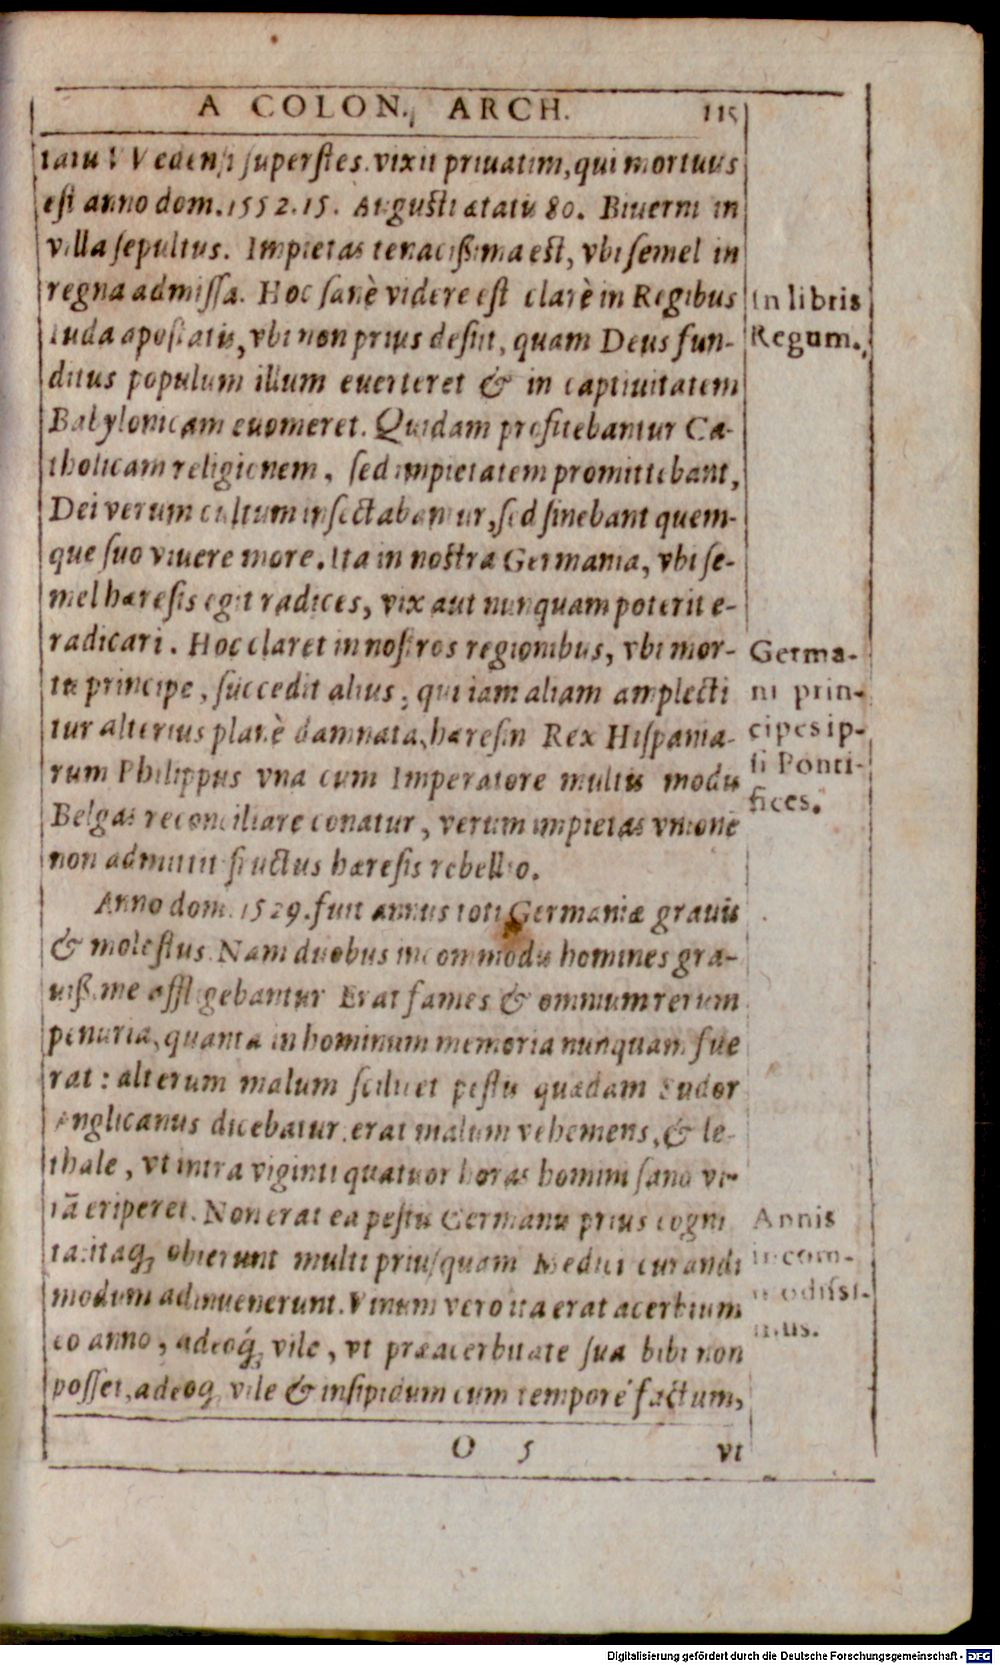 A COLON. ARCH. 115
tatu VVedensi superstes. vixit priuatim, qui mortuus
est anno dom. 1552. 15. Augusti ætatis 80. Biuerni in
villa sepultus. Impietas tenacißima est, vbi semel in
regna admissa. Hoc sanè videre est clarè in Regibus
Iuda apostatis, vbi non prius desiit, quam Deus fun-
ditus populum illum euerteret & in captiuitatem
Babylonicam euomeret. Quidam profitebantur Ca-
tholicam religionem, sed impietatem promittebant,
Dei verum cultum insectabantur, sed sinebant quem-
que suo viuere more. Ita in nostra Germania, vbi se-
mel hæresis egit radices, vix aut nunquam poterit e-
radicari. Hoc claret in nostros regionibus, vbi mor-
tu principe, succedit alius, qui iam aliam amplecti
tur alterius planè damnata, hæresin Rex Hispania-
rum Philippus vna cum Imperatore multis modis
Belgas reconciliare conatur, verum impietas vnione
non admittit fructus hæresis rebellio.
Anno dom. 1529. fuit annus toti Germaniæ grauis
& molestus. Nam duobus incommodis homines gra-
uißime affligebantur Erat fames & omnium rerum
penuria, quanta in hominum memoria nunquam fue
rat: alterum malum scilicet pestis quædam Sudor
Anglicanus dicebatur, erat malum vehemens, & le-
thale, vt intra viginti quatuor horas homini sano vi-
tã eriperet. Non erat ea pestis Germanis prius cogni
ta: itaq; obierunt multi priusquam Medici curandi
modum adinuenerunt. Vinum vero ita erat acerbum
eo anno, adeoq́; vile, vt præ acerbitate sua bibi non
posset, adeoq; vile & insipidum cum tempore factum,
O 5 vt
In libris
Regum.
Germa-
ni prin-
cipes ip-
si Ponti-
fices.
Annis
incom-
modissi-
mus.
Digitalisierung gefördert durch die Deutsche Forschungsgemeinschaft - DFG